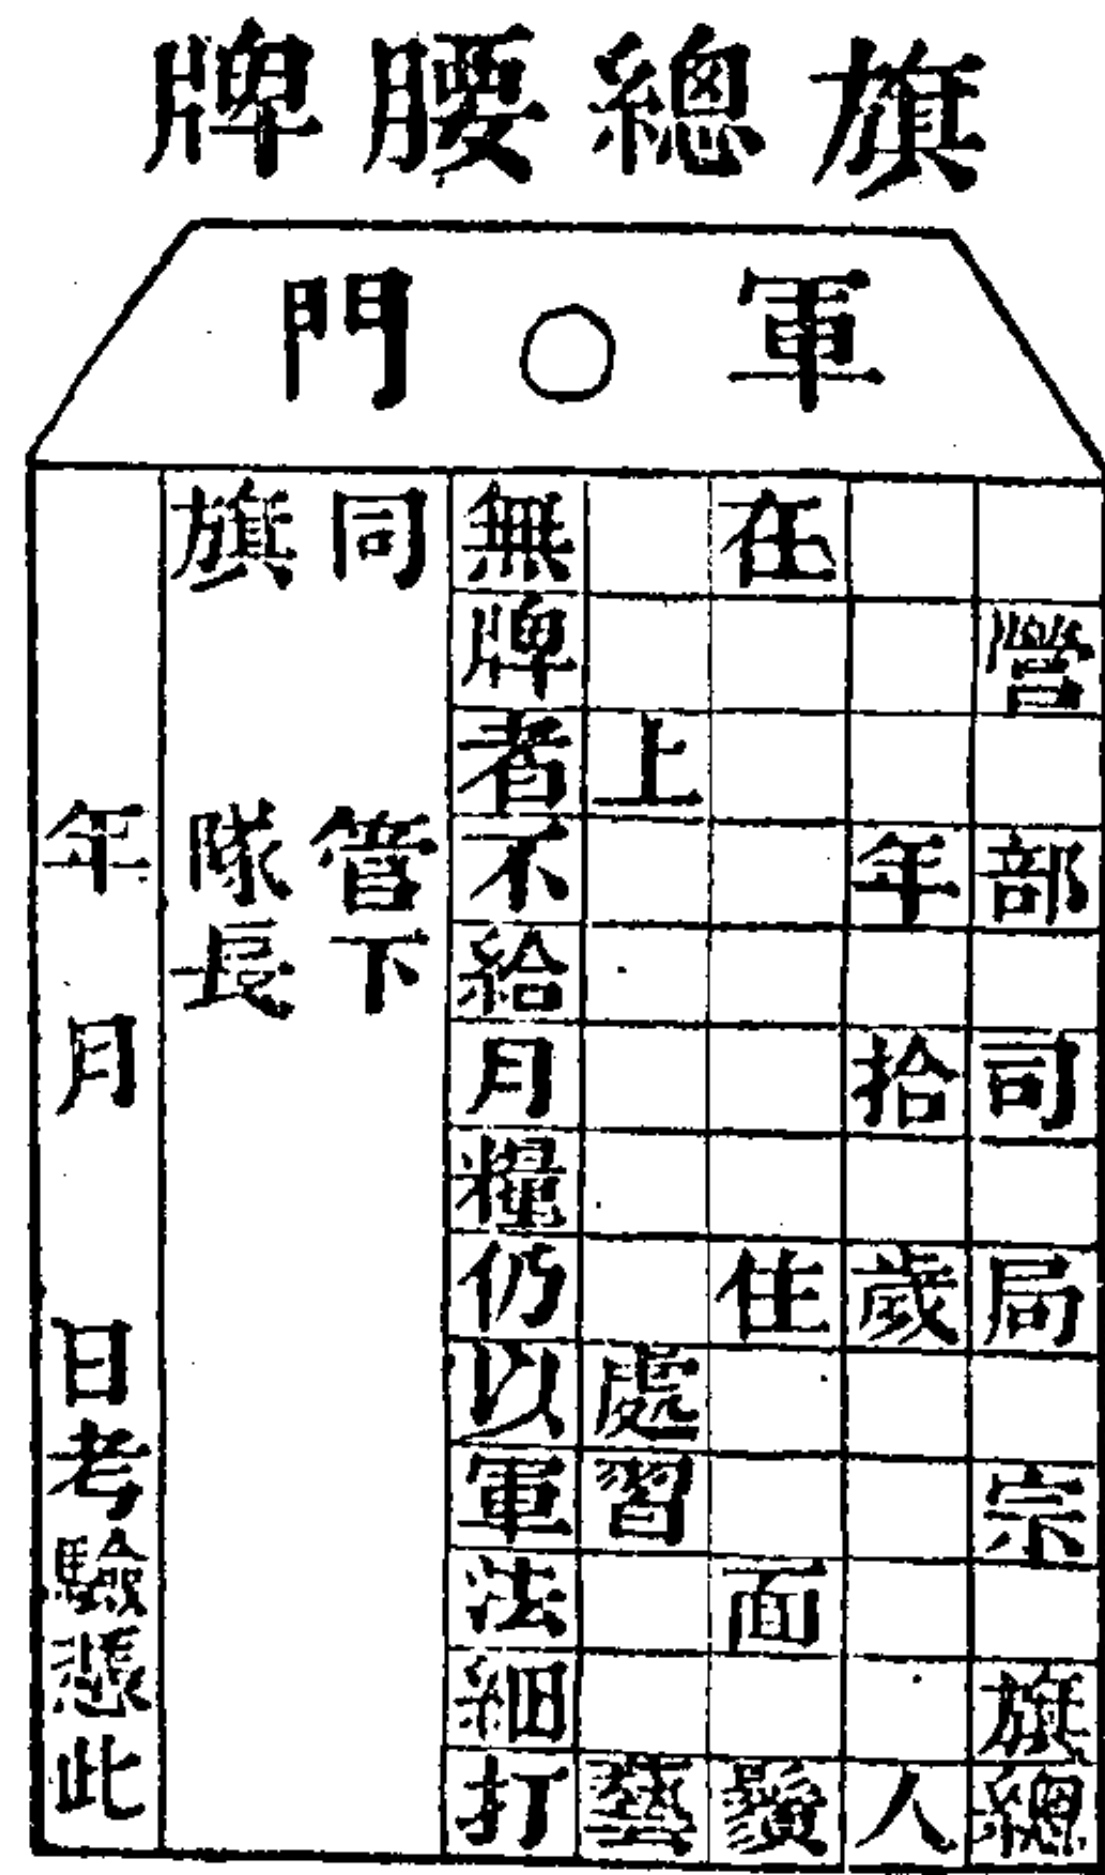 旗總腰牌
軍○門
營部司局宗旗總
年拾歲人
在住面鬚
上處習藝
無牌者不給月糧仍以軍法細打
同管下
旗隊長
年月日考驗憑此